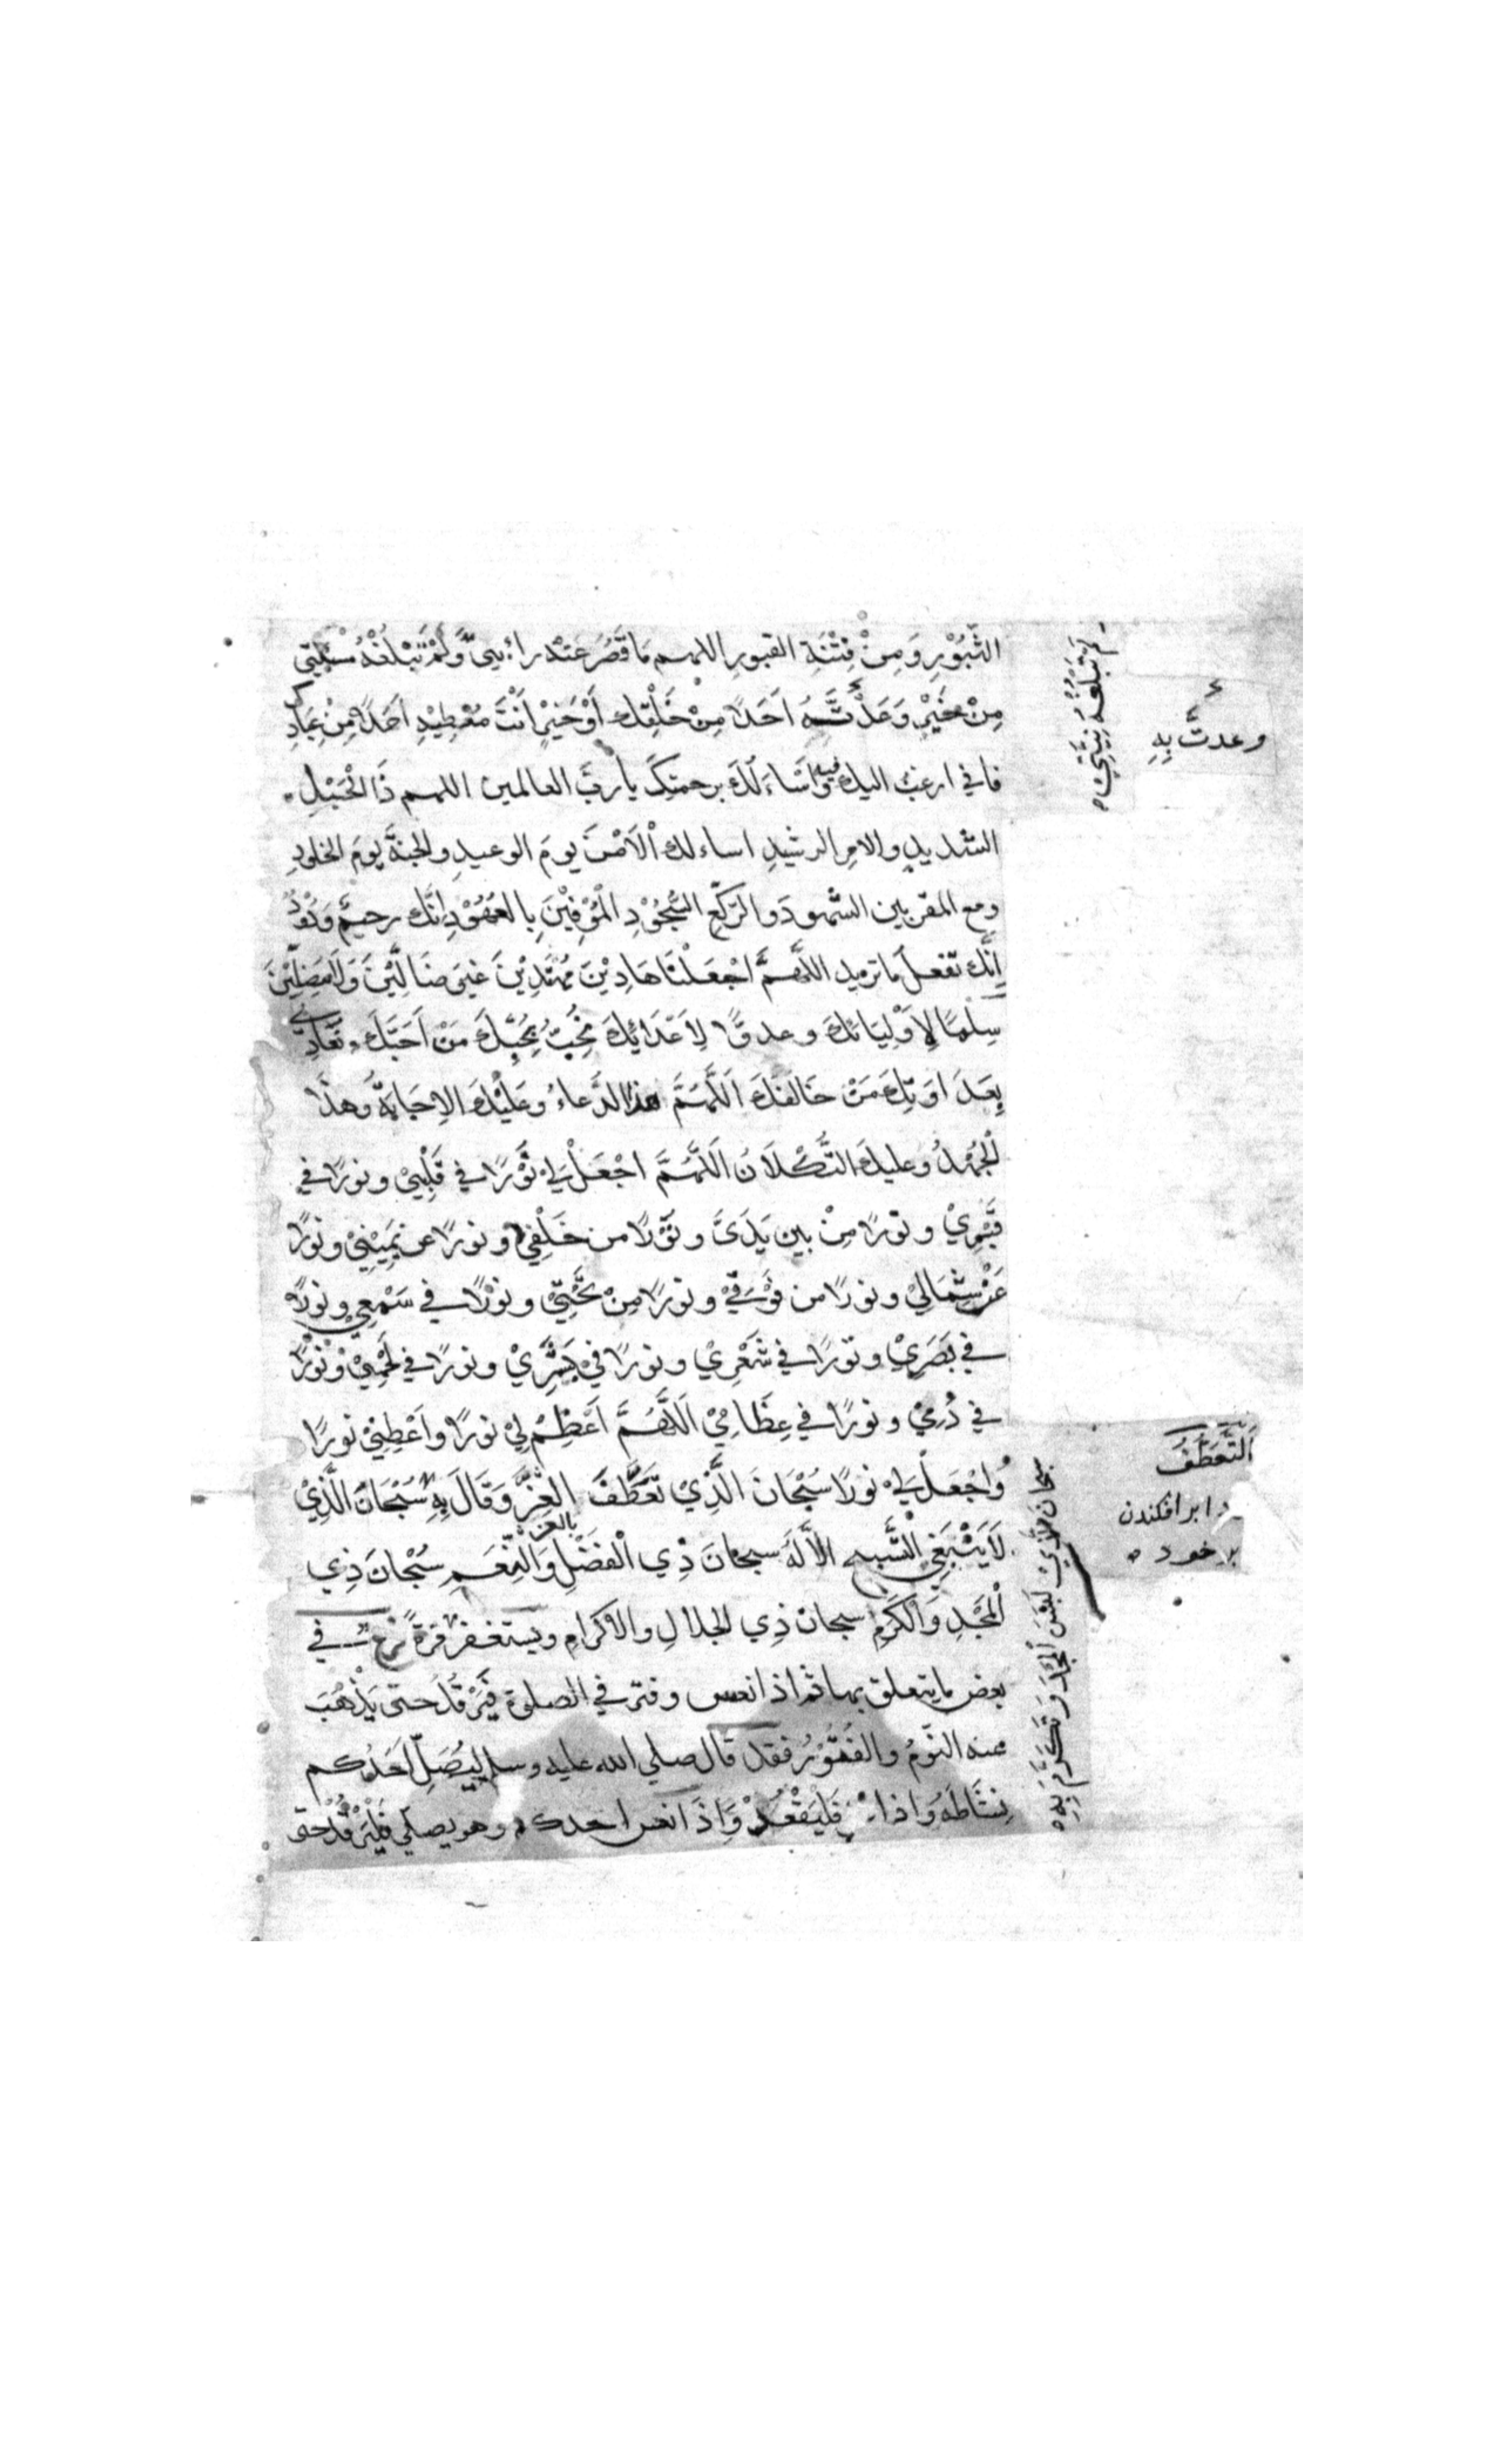 الثُّبُوْرِ وَمِنْ فِتْنَةِ القبورِ اللهم مَا قَصُرَ عَنْهُ راءيي وَلَمْ تَبْلُغْهُ مسئلتي
مِنْ خَيْرٍ وَعَدْتَّهُ اَحَدًا مِنْ خَلْقِكَ اَوْ خَيْرٍ اَنْتَ مُعْطِيْهِ اَحَدًا مِنْ عِبَادِكَ
فاني ارغب اليك فيه وَاَسْاَءَلُكَ برحمتِكَ يا ربَّ العالمين اللهم ذَا الْحَبْلِ
الشديدِ والامرِ الرشيدِ اساءلك اْلاَمْنَ يومَ الوعيدِ والجنةَ يومَ الخلودِ
ومع المقربين الشهودِ والرُّكَّعِ السُّجُوْدِ الْمُوْفِيْنَ بِالعُهُوْدِ اِنَّكَ رحيمٌ وَدُوْدٌ
اِنَّكَ تفعلُ ما تريد اللّٰهمَّ اجْعَلْنَا هَادِيْنَ مُهْتَدِيْنَ غيرَ ضَالِّيْنَ وَلَا مُضِلِّيْنَ
سِلْمًا لِاَوْلِيَائِكَ وعدوًّا لِاَعْدَائِكَ نُحِبُّ بِحُبِّكَ مَنْ اَحَبَّكَ وَنُعَادِيْ
بِعَدَاوَتِكَ مَنْ خَالَفَكَ اَللّٰهُمَّ هذا الدُّعاءُ وعَلَيْكَ الاِجَابَةُ وَهذَا
الْجُهْدُ وعليكَ التُّكْلَانُ اَللّٰهُمَّ اجْعَلْ لِيْ نُوْرًا في قَلْبِيْ ونورًا في
قَبْرِيْ ونورًا مِنْ بين يَدَيَّ ونُوْرًا من خَلْفِيْ ونورًا عن يَمِيْنِيْ ونورًا
عَنْ شِمَالِيْ ونورًا من فَوْقِيْ ونورًا مِنْ تَحْتِيْ ونورًا في سَمْعِيْ ونورًا
في بَصَرِيْ ونورًا في شَعْرِيْ ونورًا فِيْ بَشَرِيْ ونورًا في لَحْمِيْ ونورًا
في دَمِيْ ونورًا في عِظَامِيْ اَللّٰهُمَّ اَعْظِمْ لِيْ نورًا واَعْطِنِيْ نورًا
وَاجْعَلْ لِيْ نورًا سُبْحَانَ الَّذِيْ تَعَطَّفَ العِزَّ وَقَالَ بِهِ سُبْحَانَ الَّذِيْ
بالعز
لَا يَنْبَغِي التَّسْبِيحُ اِلَّا لَهُ سبحانَ ذِي الْفَضْلِ وَالنِّعَمِ سُبْحَانَ ذِي
الْمَجْدِ وَالْكَرَمِ سبحان ذِي الجلالِ والاكرامِ ويستغفر مرةً في
بعض ما يتعلق بها ثم اذا نعس وفتر في الصلوة فَيَرْقُدُ حتى يَذْهَبَ
عنه النَّومُ والفُتُوْرُ فقد قال صلى الله عليه وسلم لِيُصَلِّ اَحَدُكم
نشَاطَهُ وَاذا فَلْيَقْعُدْ وَاِذَا نعس احدكم وهو يصلي فَلْيَرْقُدْ حتى
لم تبلغه نِيَّتِي
وعدتَّ بِهِ
اَلتَّعَطُّفُ
ردا برافكندن
بر خود
سبحان الَّذِيْ لَبِسَ الْمَجْدَ وَتَكَرَّمَ بِهِ